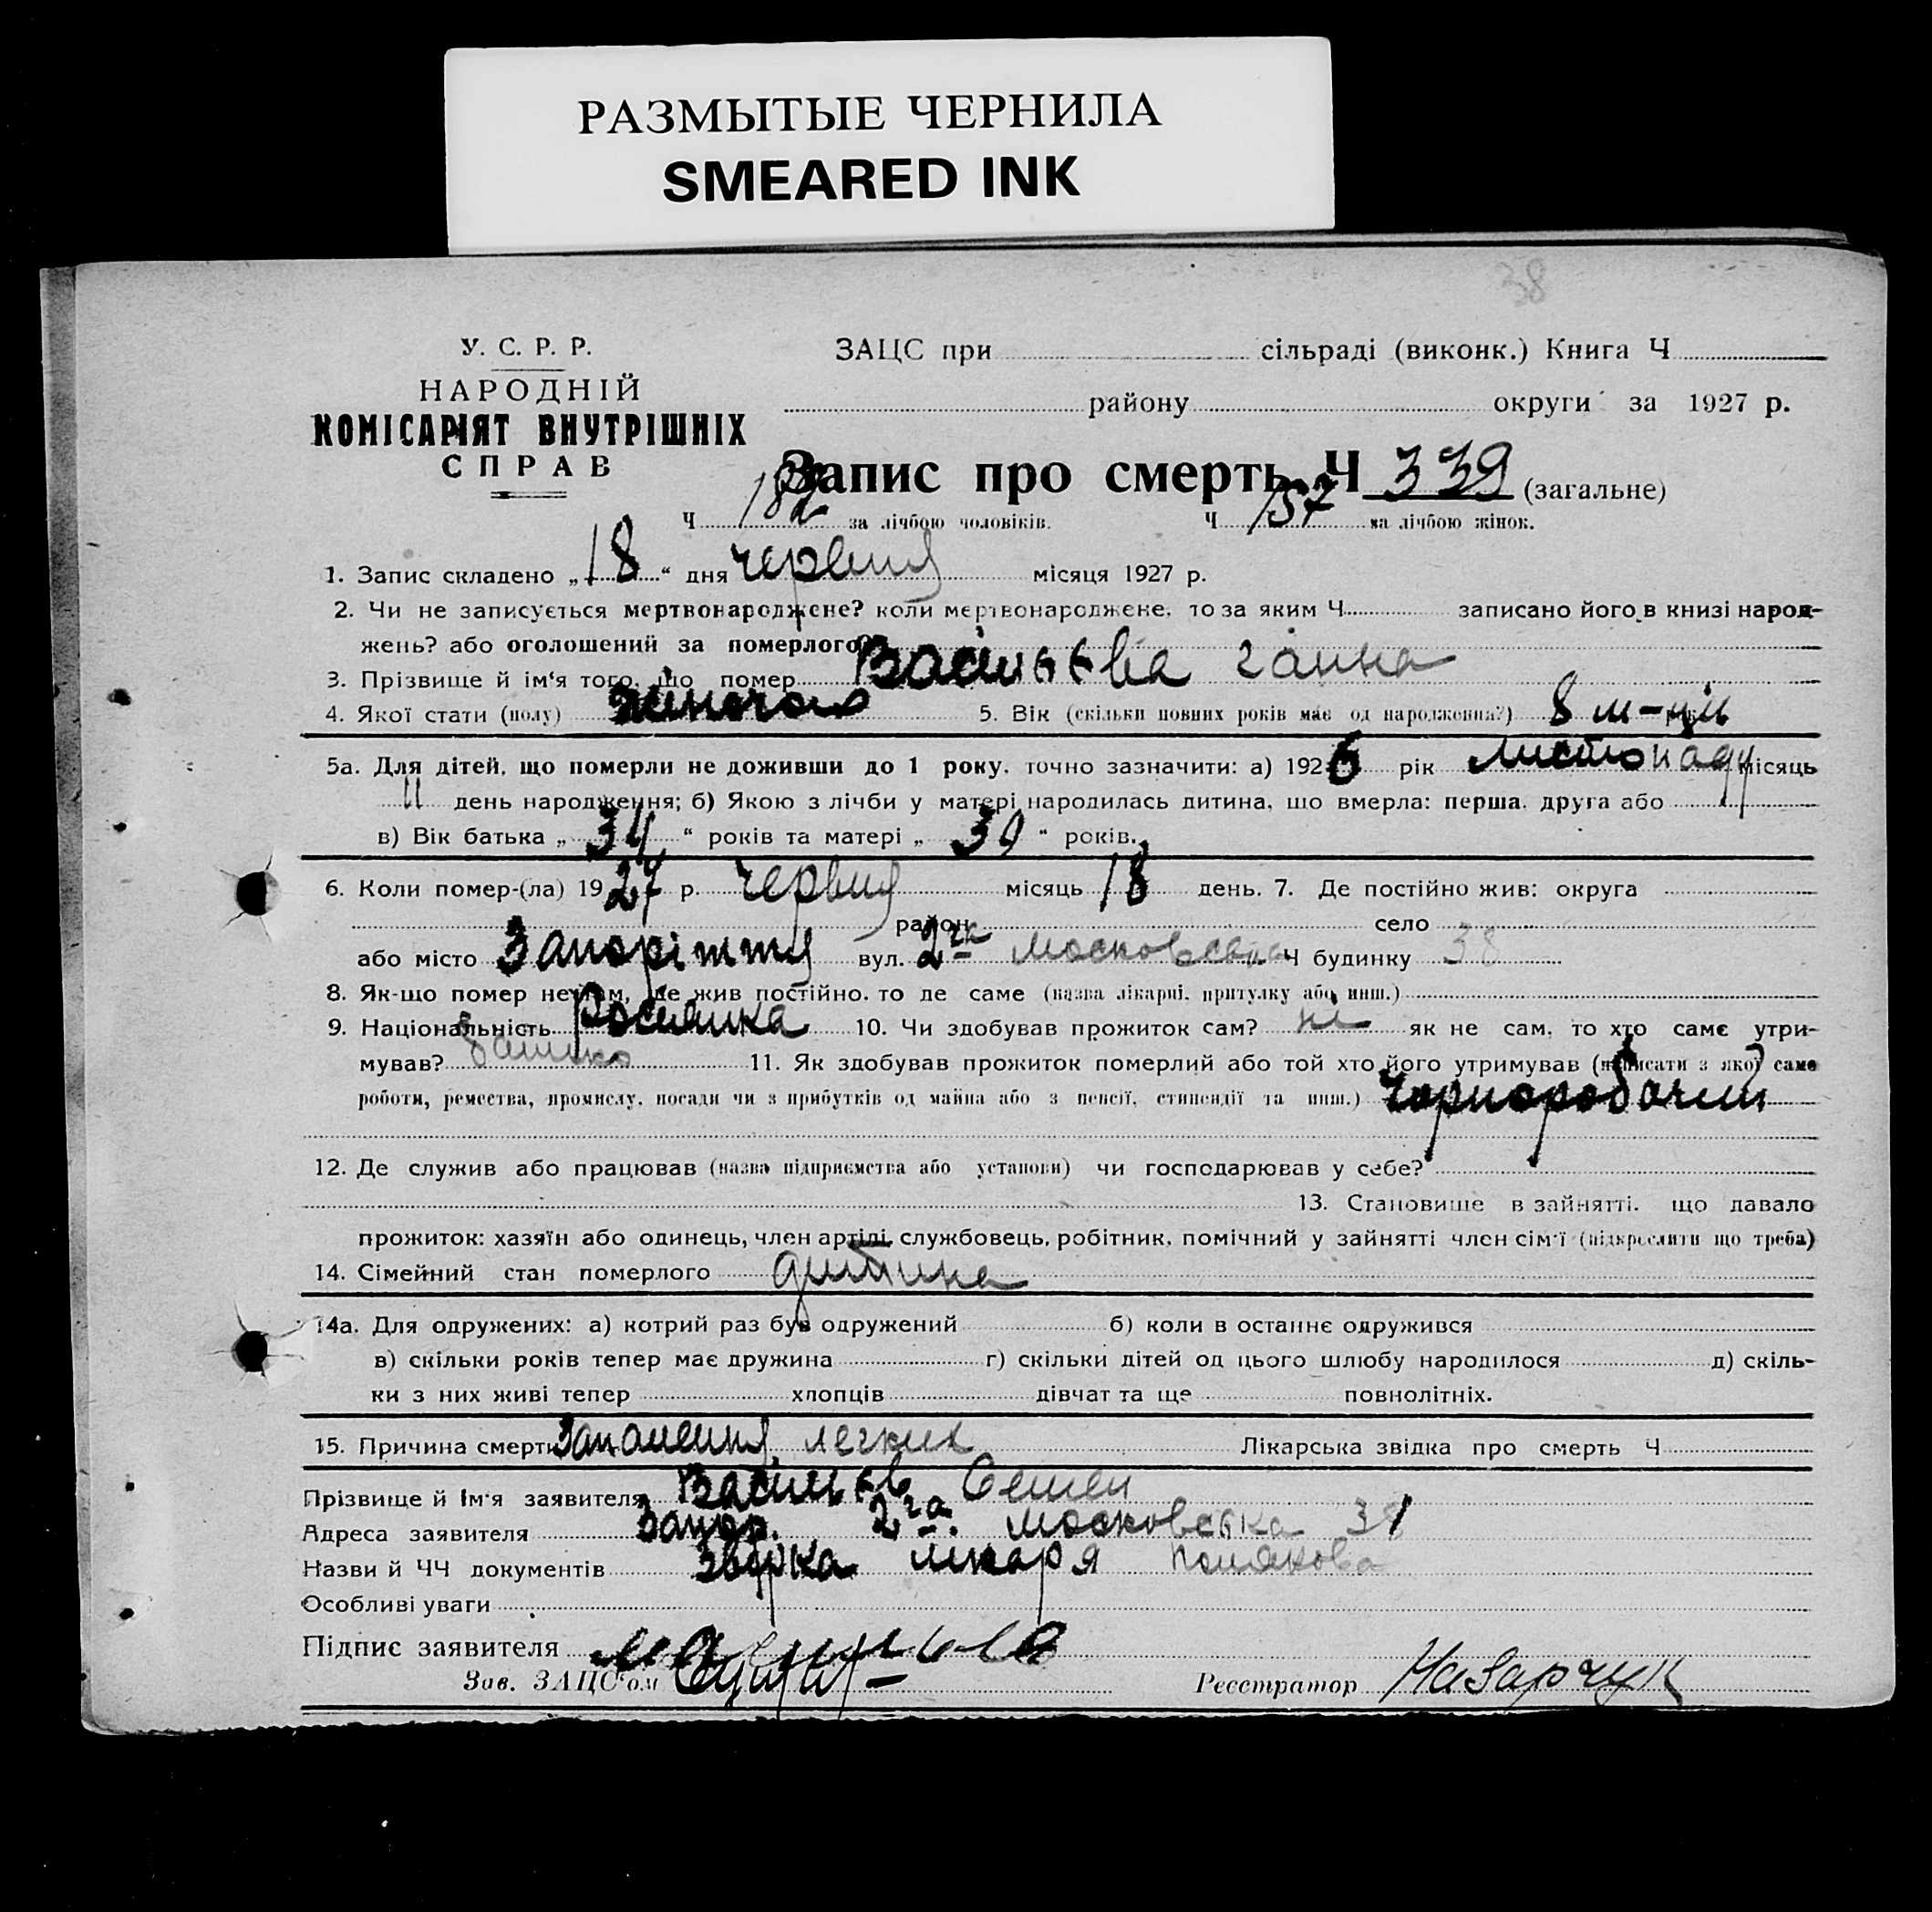 РАЗМЫТЫЕ ЧЕРНИЛА
SMEARED INK
38
У. С. Р. Р.
НАРОДНІЙ
КОМІСАРІЯТ ВНУТРІШНІХ
СПРАВ
ЗАЦС при сільраді (виконк.) Книга Ч
району округи за 1927 р.
Запис про смерть Ч 339 (загальне)
Ч 182 за лічбою чоловіків. Ч 157 за лічбою жінок.
1. Запис складено „18“ дня червня місяця 1927 р.
2. Чи не записується мертвонароджене? коли мертвонароджене, то за яким Ч записано його в книзі народ-
жень? або оголошений за померлого?
3. Прізвище й ім‘я того, що помер Васильєва Ганна
4. Якої стати (полу) жіночого 5. Вік (скільки повних років має од народження?) 8 м-ців
5а. Для дітей, що померли не доживши до 1 року, точно зазначити: а) 1926 рік листопаду місяць
11 день народження; б) Якою з лічби у матері народилась дитина, що вмерла: перша, друга або
в) Вік батька „34“ років та матері „30“ років.
6. Коли помер-(ла) 1927 р. червня місяць 18 день. 7. Де постійно жив: округа
район село
або місто Запоріжжя вул. 2га Московська Ч будинку 38
8. Як-що помер не там, де жив постійно, то де саме (назва лікарні, притулку або инш.)
9. Національність Росіянка 10. Чи здобував прожиток сам? ні як не сам, то хто саме утри-
мував? батько 11. Як здобував прожиток померлий або той хто його утримував (написати з якої саме
роботи, ремества, промислу, посади чи з прибутків од майна або з пенсії, стипендії та инш.) чорноробочий
12. Де служив або працював (назва підприємства або установи) чи господарював у себе?
13. Становище в зайнятті, що давало
прожиток: хазяїн або одинець, член артілі, службовець, робітник, помічний у зайнятті член сім‘ї (підкреслити що треба)
14. Сімейний стан померлого дитина
14а. Для одружених: а) котрий раз був одружений б) коли в останнє одружився
в) скільки років тепер має дружина г) скільки дітей од цього шлюбу народилося д) скіль-
ки з них живі тепер хлопців дівчат та ще повнолітніх.
15. Причина смерти Запалення легких Лікарська звідка про смерть Ч
Прізвище й Ім‘я заявителя Васильєв Семен
Адреса заявителя Запор. 2га Московська 38
Назви й ЧЧ документів лікаря Полякова
Особливі уваги
Підпис заявителя
Зав. ЗАЦС‘ом Реєстратор Назарчук